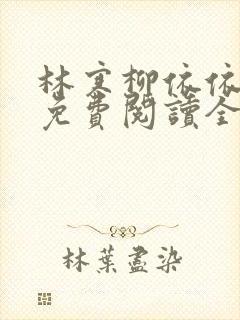 林寒柳依依
免費閱讀全
林葉盡染